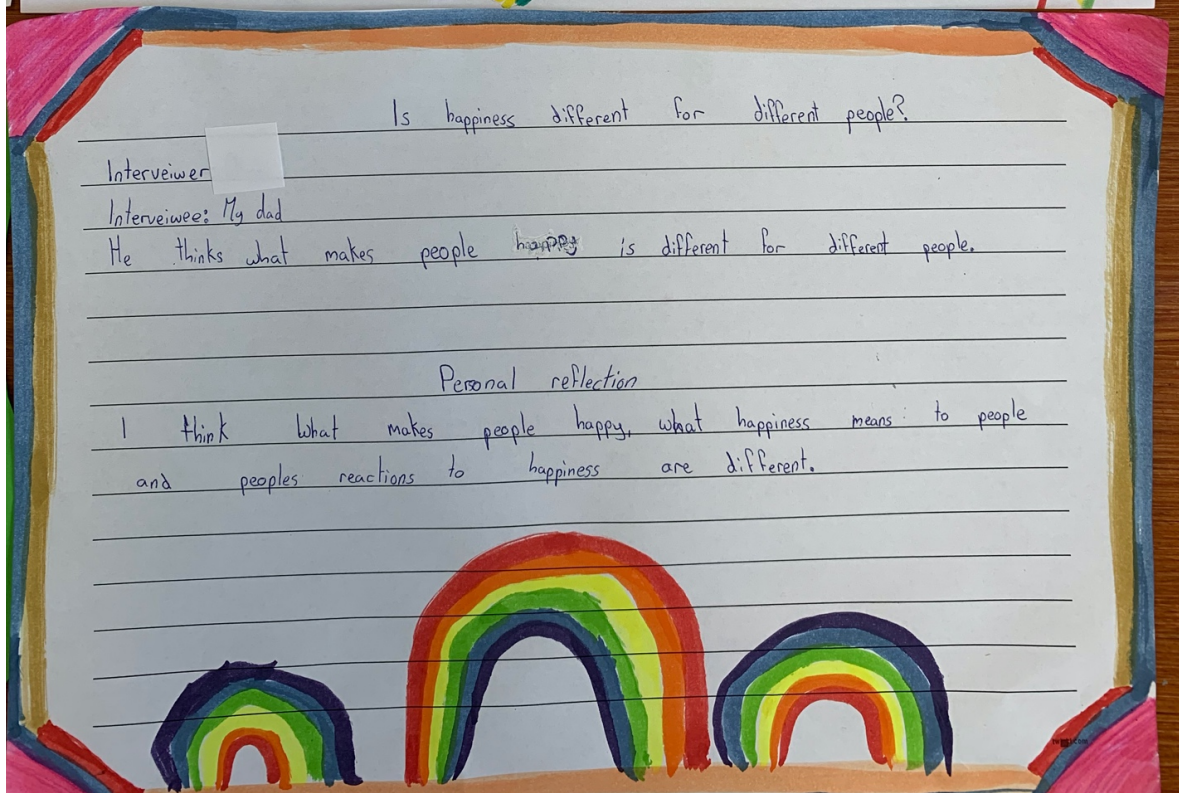 Is happiness different for different people?
Interveiwer
Interveiwee: My dad
He thinks what makes people happy is different for different people.
Personal reflection
I think what makes people happy, what happiness means to people
and peoples reactions to happiness are different.